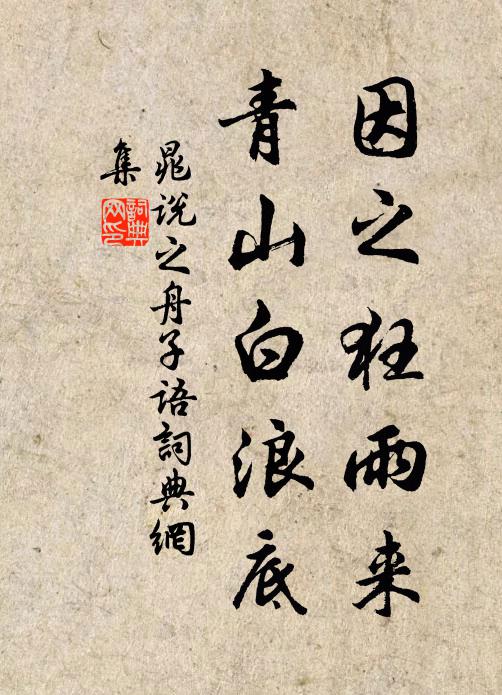 因之狂雨来
青山白浪底
晁说之舟子语詞典網
集
詞典
网印